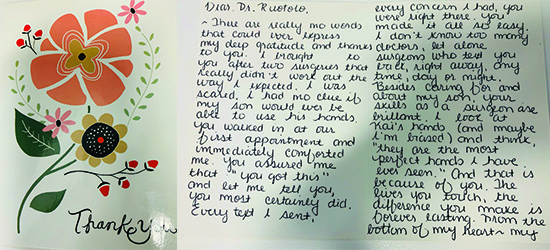 Thank You
Dear Dr. Ruotolo,
~ There are really no words
that could ever express
my deep gratitude and thanks
to you. I brought to
you after two surgeries that
really didn't work out the
way I expected. I was
scared. I had no clue if
my son would ever be
able to use his hands.
You walked in at our
first appointment and
immediately comforted
me. You assured me
that "you got this"
and let me tell you,
you most certainly did.
Every text I sent,
every concern I had, you
were right there. You
made it all so easy.
I don't know too many
doctors, let alone
surgeons who text you
back, right away, any
time, day or night.
Besides caring for and
about my son, your
skills as a surgeon are
brillant. I look at
Kai's hands (and maybe
I'm biased) and think,
"they are the most
perfect hands I have
ever seen." And that is
because of you. The
lives you touch, the
difference you make is
forever lasting. From the
bottom of my heart~ my